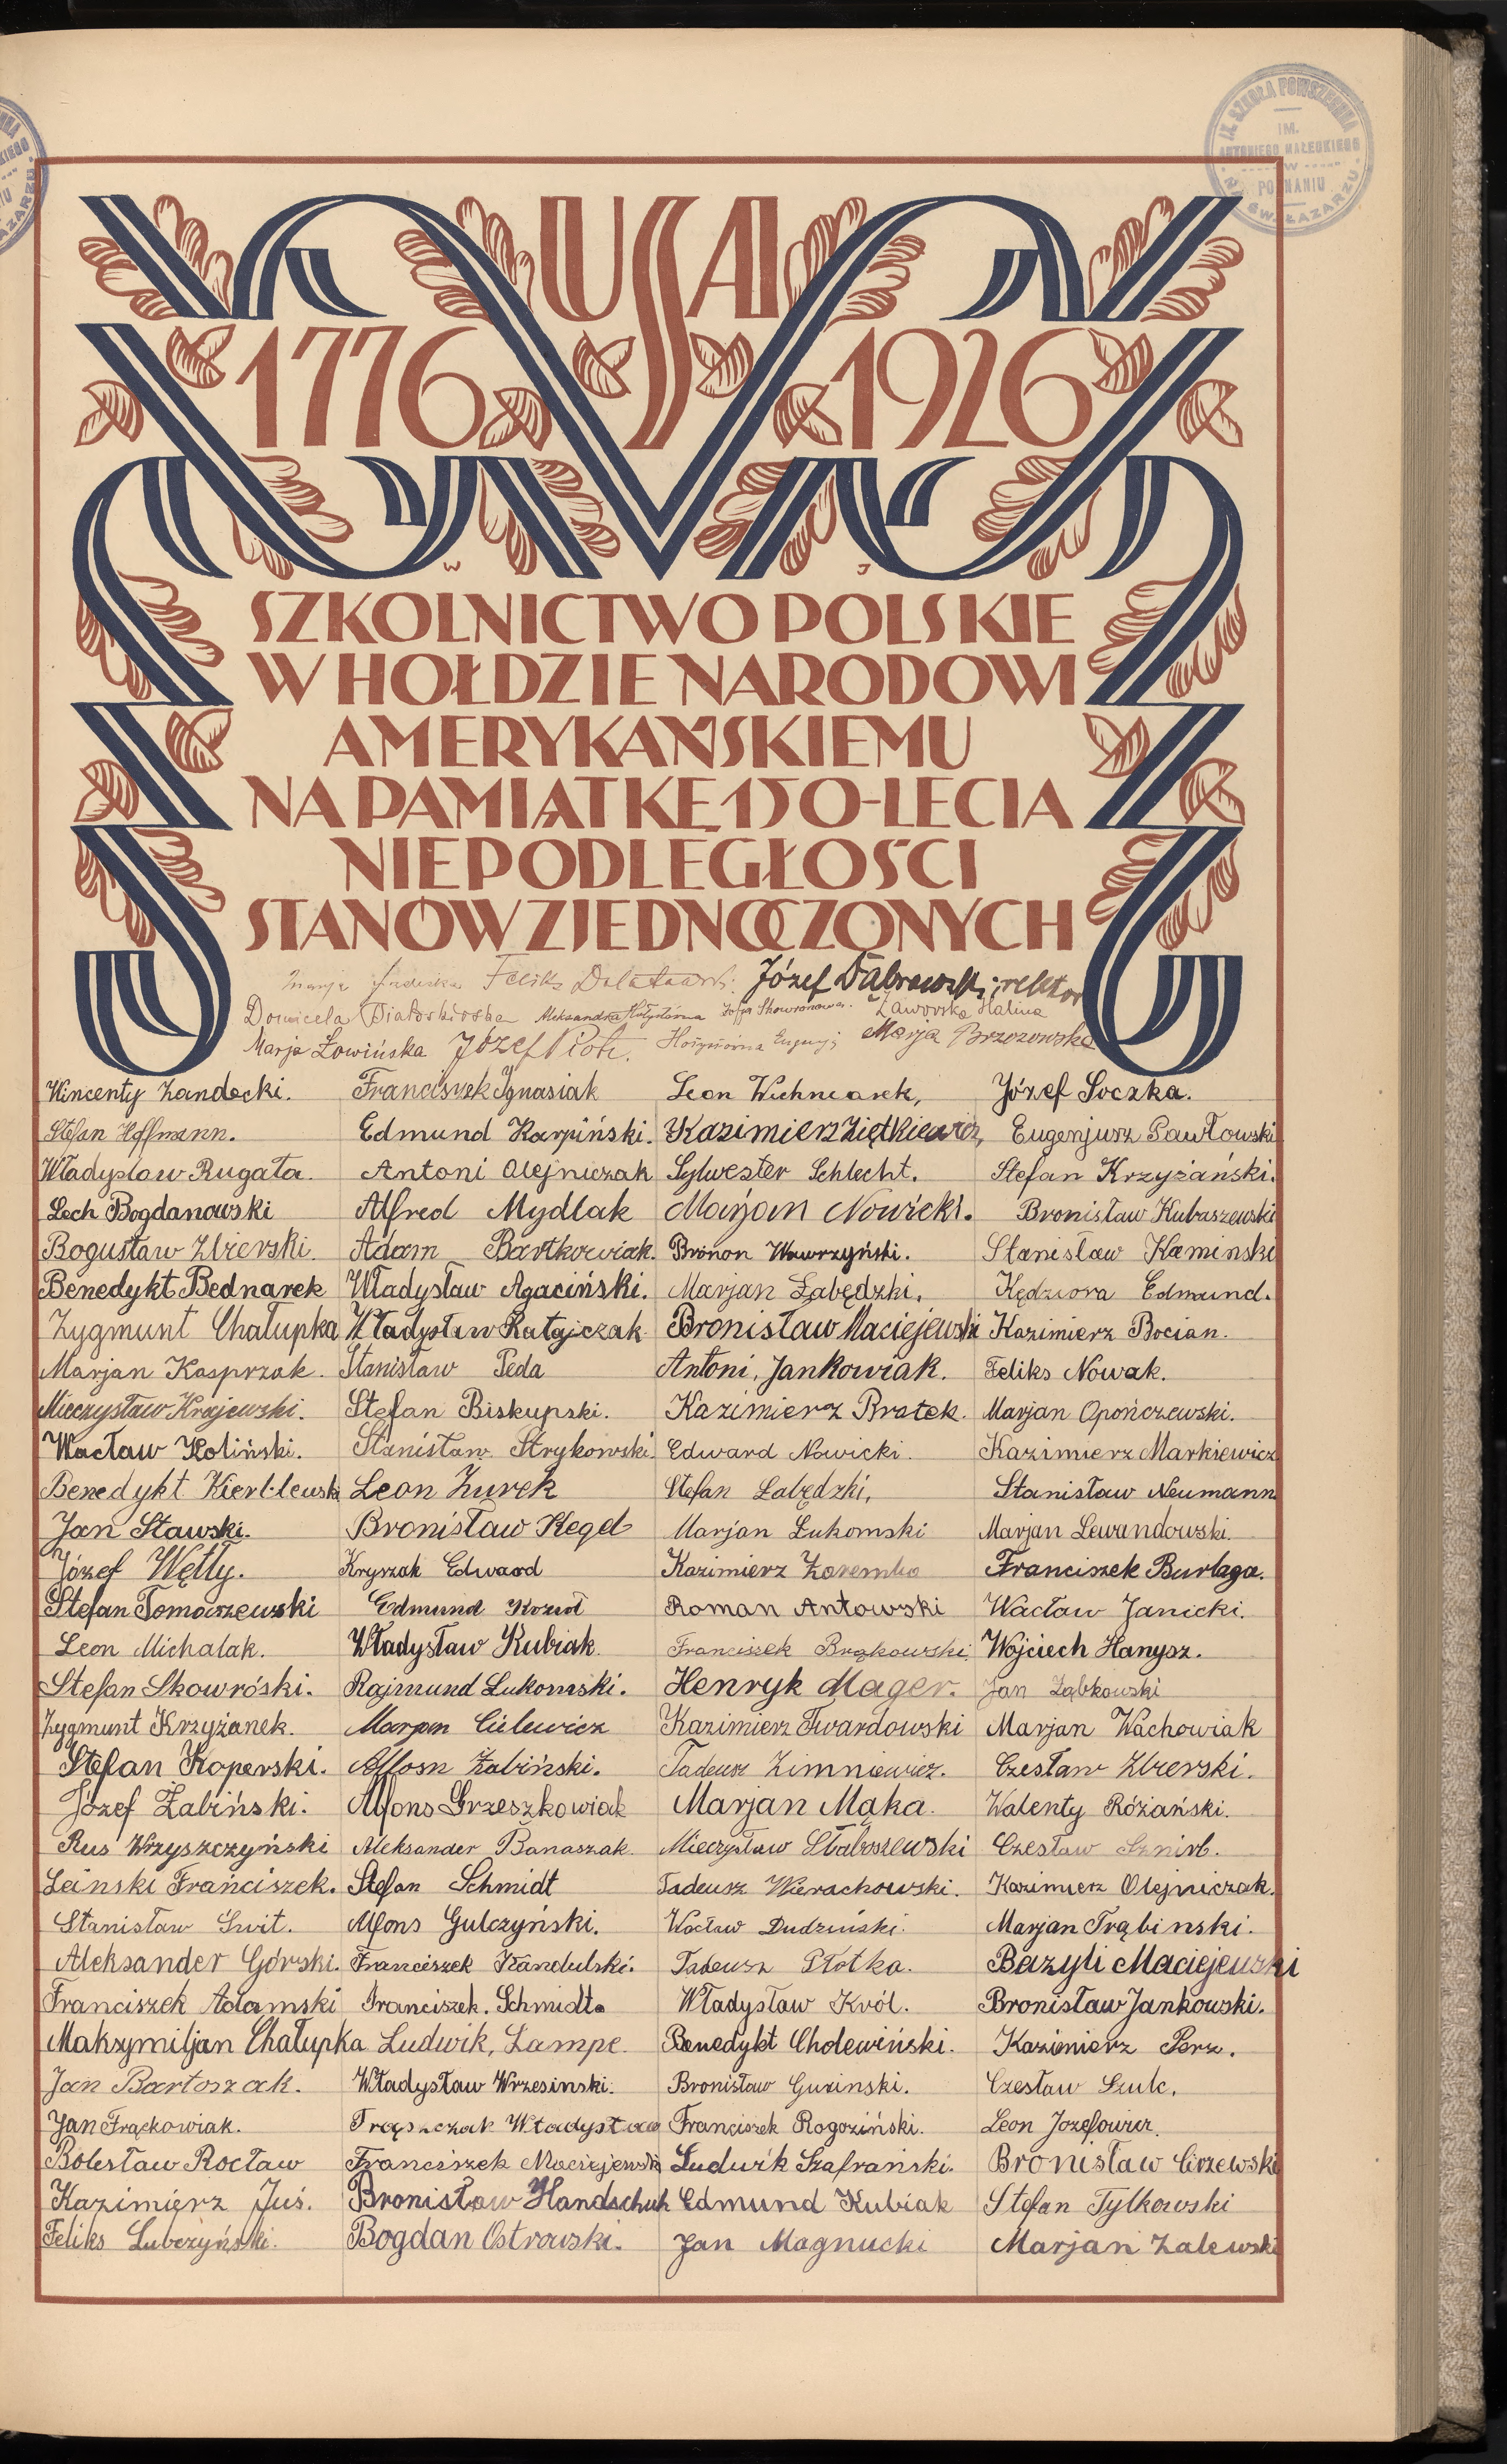 IX. SZKOŁA POWSZECHNA
IM.
ANTONIEGO MAŁECKIEGO
W
POZNANIU
ŚW. ŁAZARZU
USA
1776 1926
W J
SZKOLNICTWO POLSKIE
W HOŁDZIE NARODOWI
AMERYKAŃSKIEMU
NA PAMIĄTKĘ 150-LECIA
NIEPODLEGŁOŚCI
STANÓW ZJEDNOCZONYCH
Marja Feliks Józef Dąbrowski, rektor
Domicela Aleksandra Zofja Skowronowa. Zaworska Halina
Marja Łowińska Józef Piotr. Marja Brzozowska
Wincenty Zandecki. Franciszek Ignasiak Leon Wichniarek, Józef Soczka.
Stefan Hoffmann. Edmund Karpiński. Kazimierz Ziętkiewicz, Eugenjusz Pawłowski
Władysław Rugała. Antoni Olejniczak Sylwester Schlecht. Stefan Krzyżański.
Lech Bogdanowski Alfred Mydlak Marjan Nowicki. Bronisław Kubaszewski
Bogusław Zbierski. Adam Bartkowiak. Bronon Wawrzyński. Stanisław Kamiński
Benedykt Bednarek Władysław Agaciński. Marjan Łabędzki, Kędziora Edmund.
Zygmunt Chałupka Władysław Ratajczak Bronisław Maciejewski Kazimierz Bocian.
Marjan Kasprzak. Stanisław Peda Antoni, Jankowiak. Feliks Nowak.
Mieczysław Krajewski. Stefan Biskupski. Kazimierz Bratek. Marjan Opończewski.
Wacław Koliński. Stanisław Strykowski. Edward Nowicki. Kazimierz Markiewicz
Benedykt Leon Żurek Stefan Łabędzki, Stanisław Neumann
Jan Stawski. Bronisław Kegel Marjan Łukomski Marjan Lewandowski.
Józef Wętły. Kryszak Edward Kazimierz Zaremba Franciszek Burlaga.
Stefan Tomaszewski Edmund Roman Antowski Wacław Janicki.
Leon Michalak. Władysław Kubiak Franciszek Brąkowski Wojciech Hanysz.
Stefan Skowróski. Rajmund Łukomski. Henryk Mager. Jan Ząbkowski
Zygmunt Krzyżanek. Marjan Cielewicz Kazimierz Twardowski Marjan Wachowiak
Stefan Koperski. Alfosn Żabiński. Tadeusz Zimniewicz. Czesław Zbierski.
Józef Żabiński. Alfons Grzeszkowiak Marjan Mąka. Walenty Różański.
Rus Wrzyszczyński Aleksander Banaszak. Mieczysław Słaboszewski Czesław
Leinski Franciszek. Stefan Schmidt Tadeusz Wierachowski. Kazimierz Olejniczak.
Stanisław Świt. Alfons Gulczyński. Wacław Dudziński. Marjan Trąbinski.
Aleksander Górski. Franciszek Kandulski. Tadeusz Płotka. Bazyli Maciejewski
Franciszek Adamski Franciszek. Schmidt. Władysław Król. Bronisław Jankowski.
Maksymiljan Chałupka Ludwik, Lampe. Benedykt Cholewiński. Kazimierz Perz.
Jan Bartoszak. Władysław Wrzesinski. Bronisław Gurinski. Czesław Szulc.
Jan Frąckowiak. Władysław Franciszek Rogoziński. Leon Jozefowicz.
Bolesław Rocław Franciszek Maciejewski Ludwik Szafrański. Bronisław Circzewski
Kazimierz Juś. Bronisław Handschuh Edmund Kubiak Stefan Tylkowski
Feliks Luberyński. Bogdan Ostrowski. Jan Magnucki Marjan Zalewski